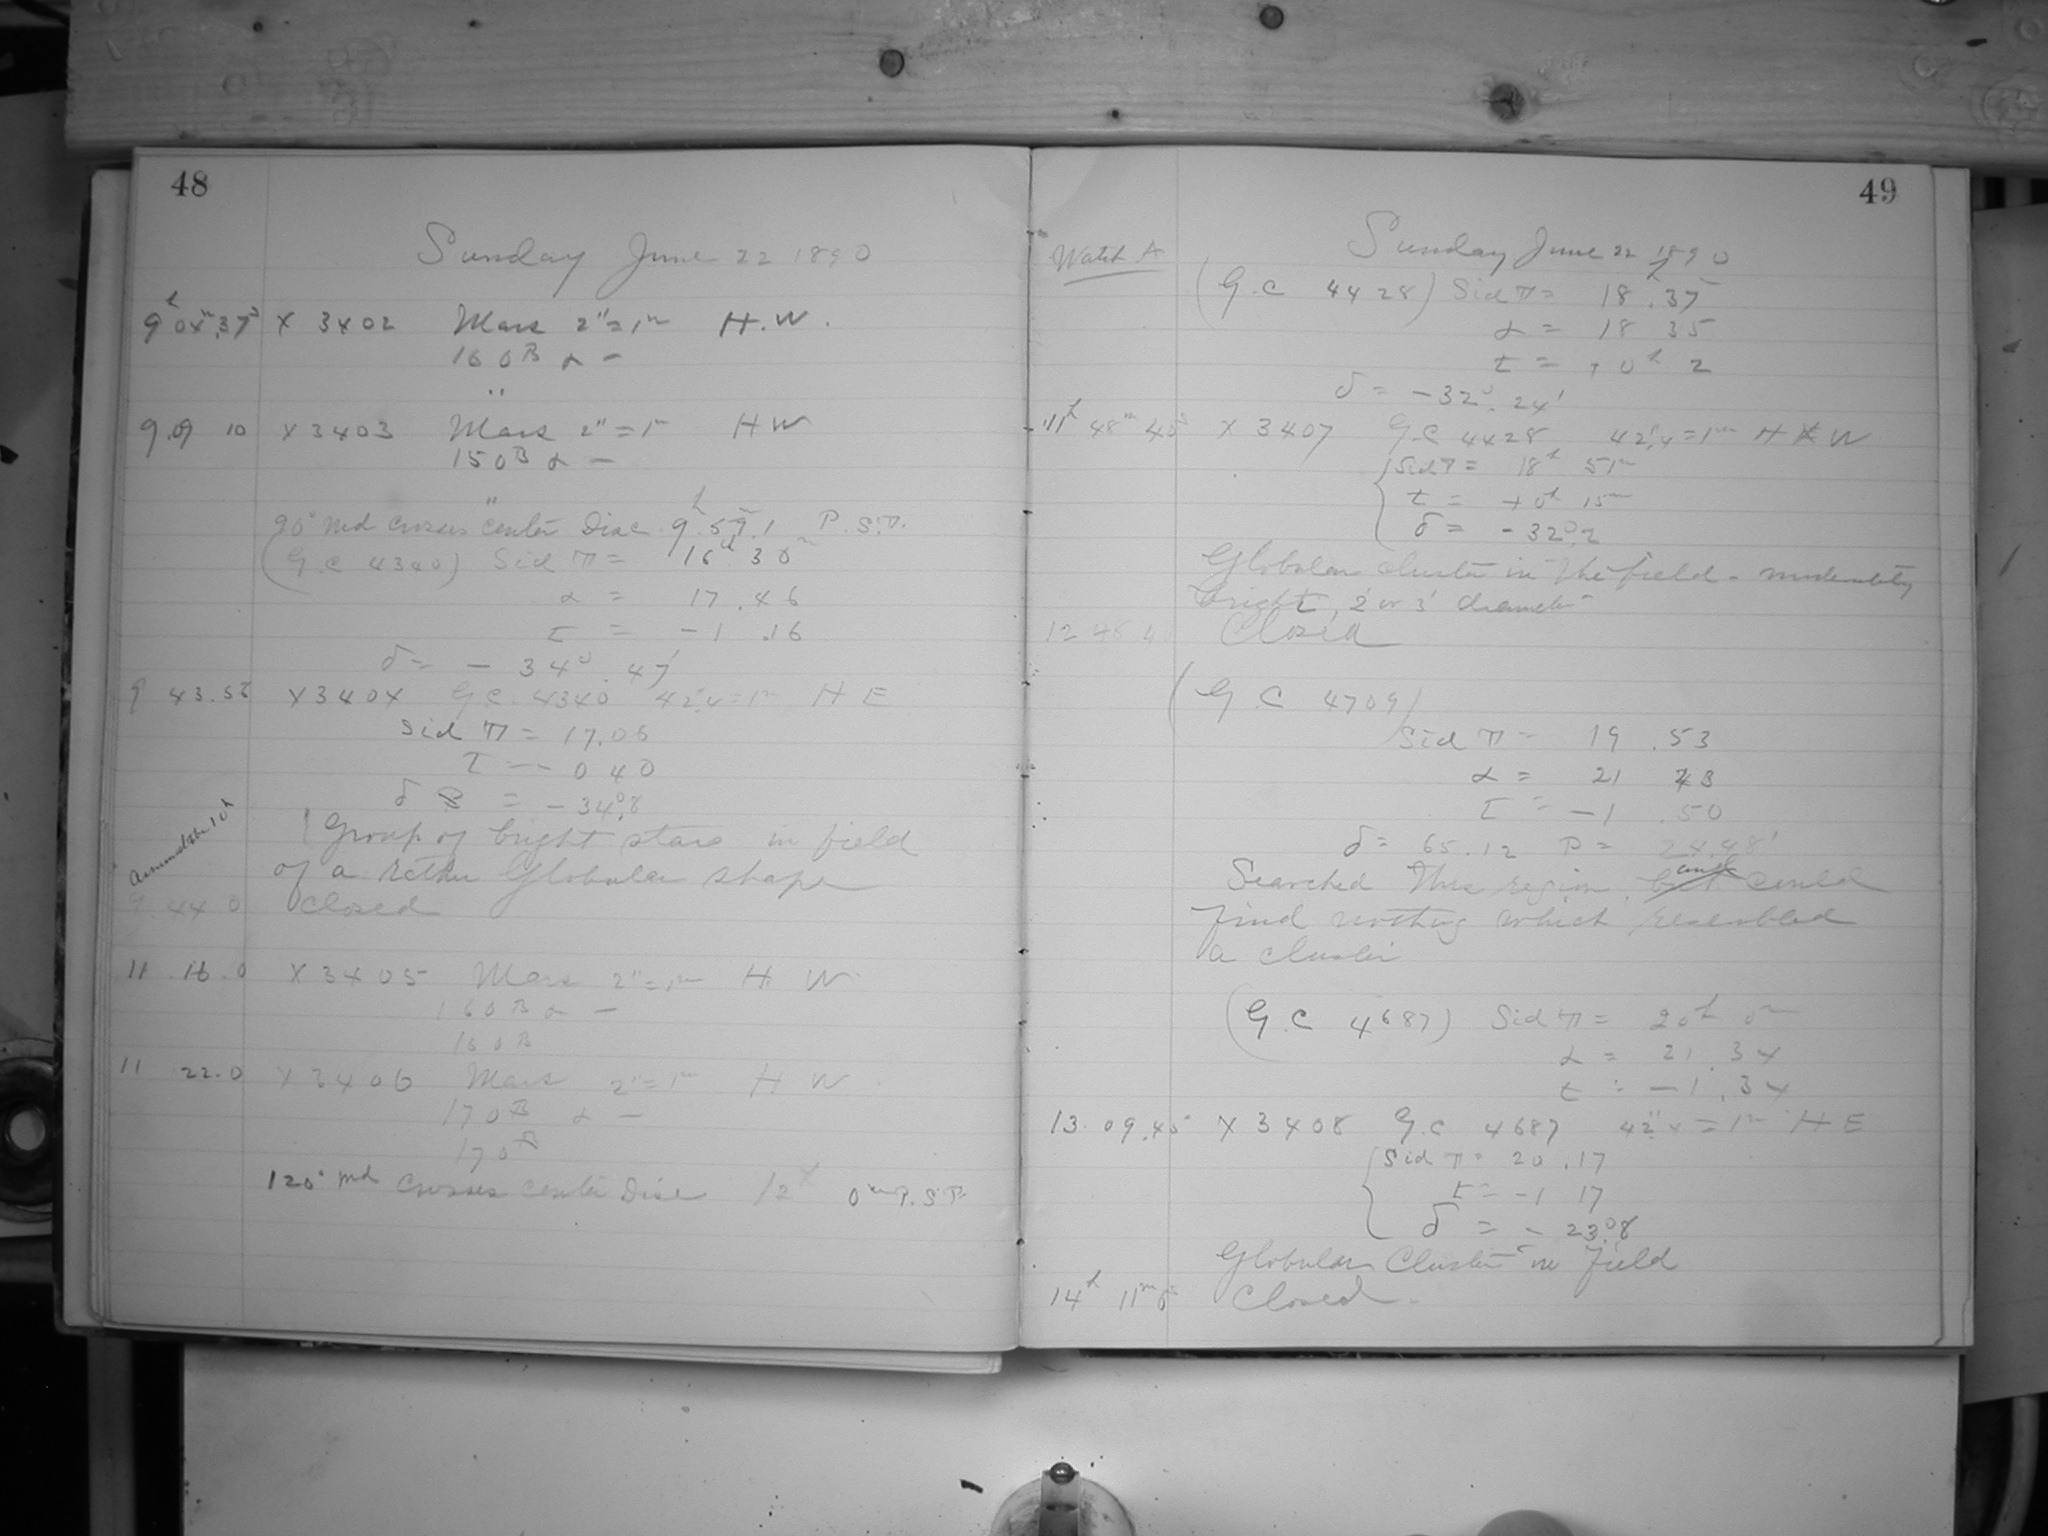 48
Sunday June 22 1890
9h 04m 37s X 3402 Mars 2"=1m H.W.
160B α –
"
9.09 10 X 3403 Mars 2"=1m H W
150B α –
"
90° md crosses center Disc 9h.59m.1 P.S.T.
(G.C 4340) Sid T = 16h 30m
α = 17.46
τ = –1 .16
δ = – 34°.47'
9 43.56 X 3404 G.C. 4340 42".4=1m H E
Sid T = 17.06
τ = – 0 40
δ = – 34°.8
Group of bright stars in field
of a rather Globular shape
9.44 0 closed
11 .16.0 X 3405 Mars 2"=1m H. W.
160B α –
150B
11 22.0 X 3406 Mars 2"=1m H W
170B α –
170B
120° md crosses center Disc 12h 0m P.S.T.
49
Watch A
Sunday June 22 1890
(G.C 4428) Sid T = 18h.37
α = 18 35
t = +0h 2
δ = –32°.24'
11h 48m 40s X 3407 G.C 4428 42".4=1m H W
Sid T = 18h 51m
t = +0h 15m
δ = –32°.2
Globular cluster in the field – moderately
bright, 2' or 3' diameter
12 Closed
(G.C 4709)
Sid T = 19 .53
α = 21 43
τ = –1 .50
δ = 65.12 P = 24.48'
Searched this region, but could
find nothing which resembled
a cluster
(G.C 4687) Sid T = 20h 0m
α = 21.34
t = –1.34
13.09.45 X 3408 G.C 4687 42".4=1m H E
Sid T = 20.17
t = –1 17
δ = – 23°.8
Globular Cluster in field
14h 11m closed